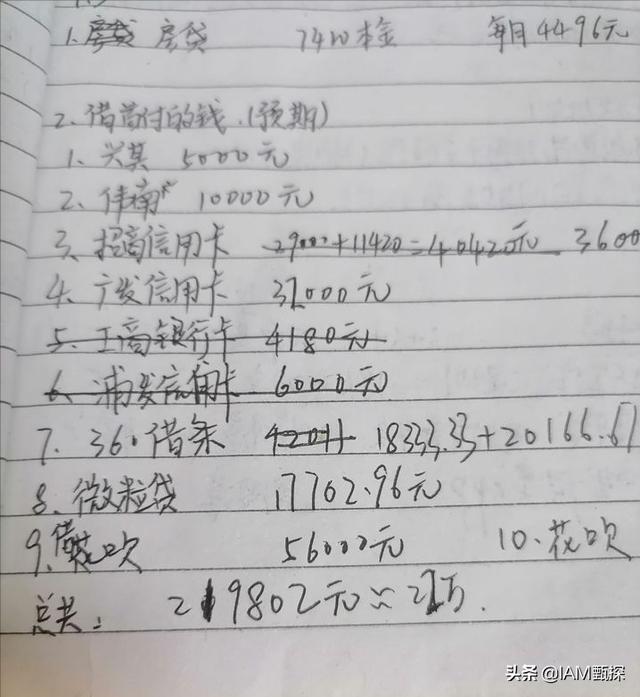 1. 房贷 房贷 7410本金 每月4496元
2. 借首付的钱.(预期)
1. 兴其 5000元
2. 伟南 10000元
3. 招商信用卡 29000+11420=40420元 3600
4. 广发信用卡 32000元
5. 工商银行卡 4180元
6. 浦发信用卡 6000元
7. 360借条 42011 18333.33+20166.67
8. 微粒贷 17762.96元
9. 借呗 56000元 10. 花呗
总共: 219802元≈22万.
头条 @IAM甄探